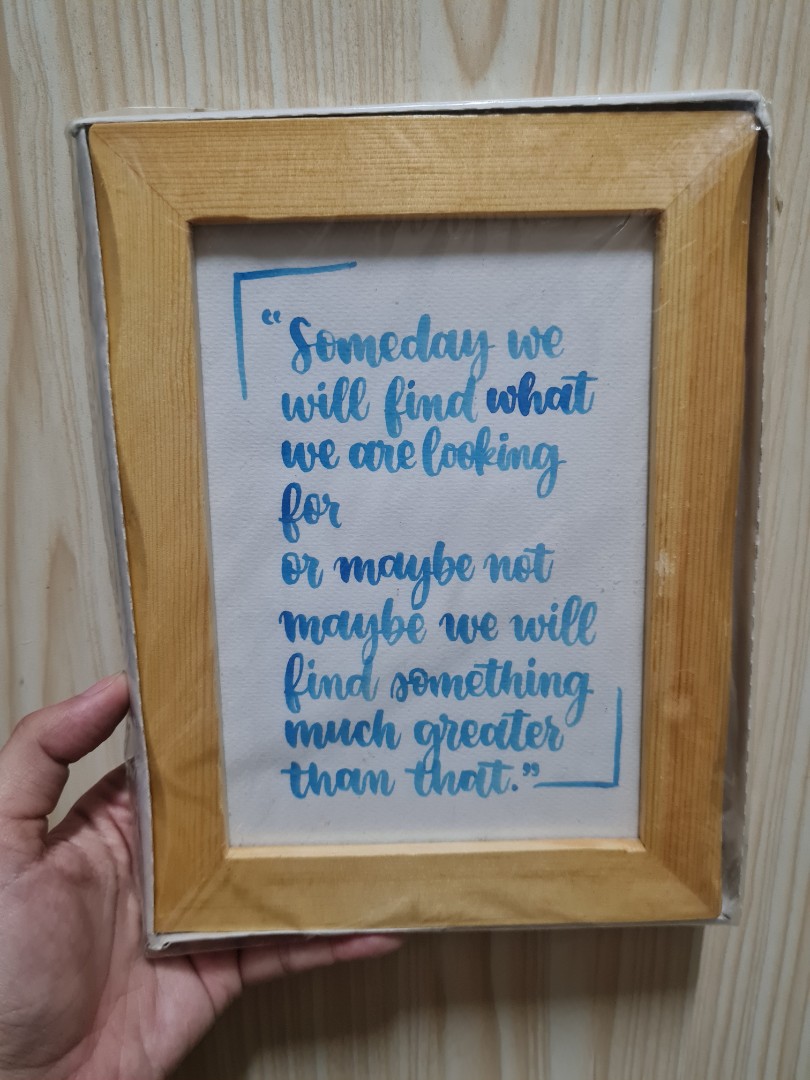 “Someday we
will find what
we are looking
for
or maybe not
maybe we will
find something
much greater
than that.”